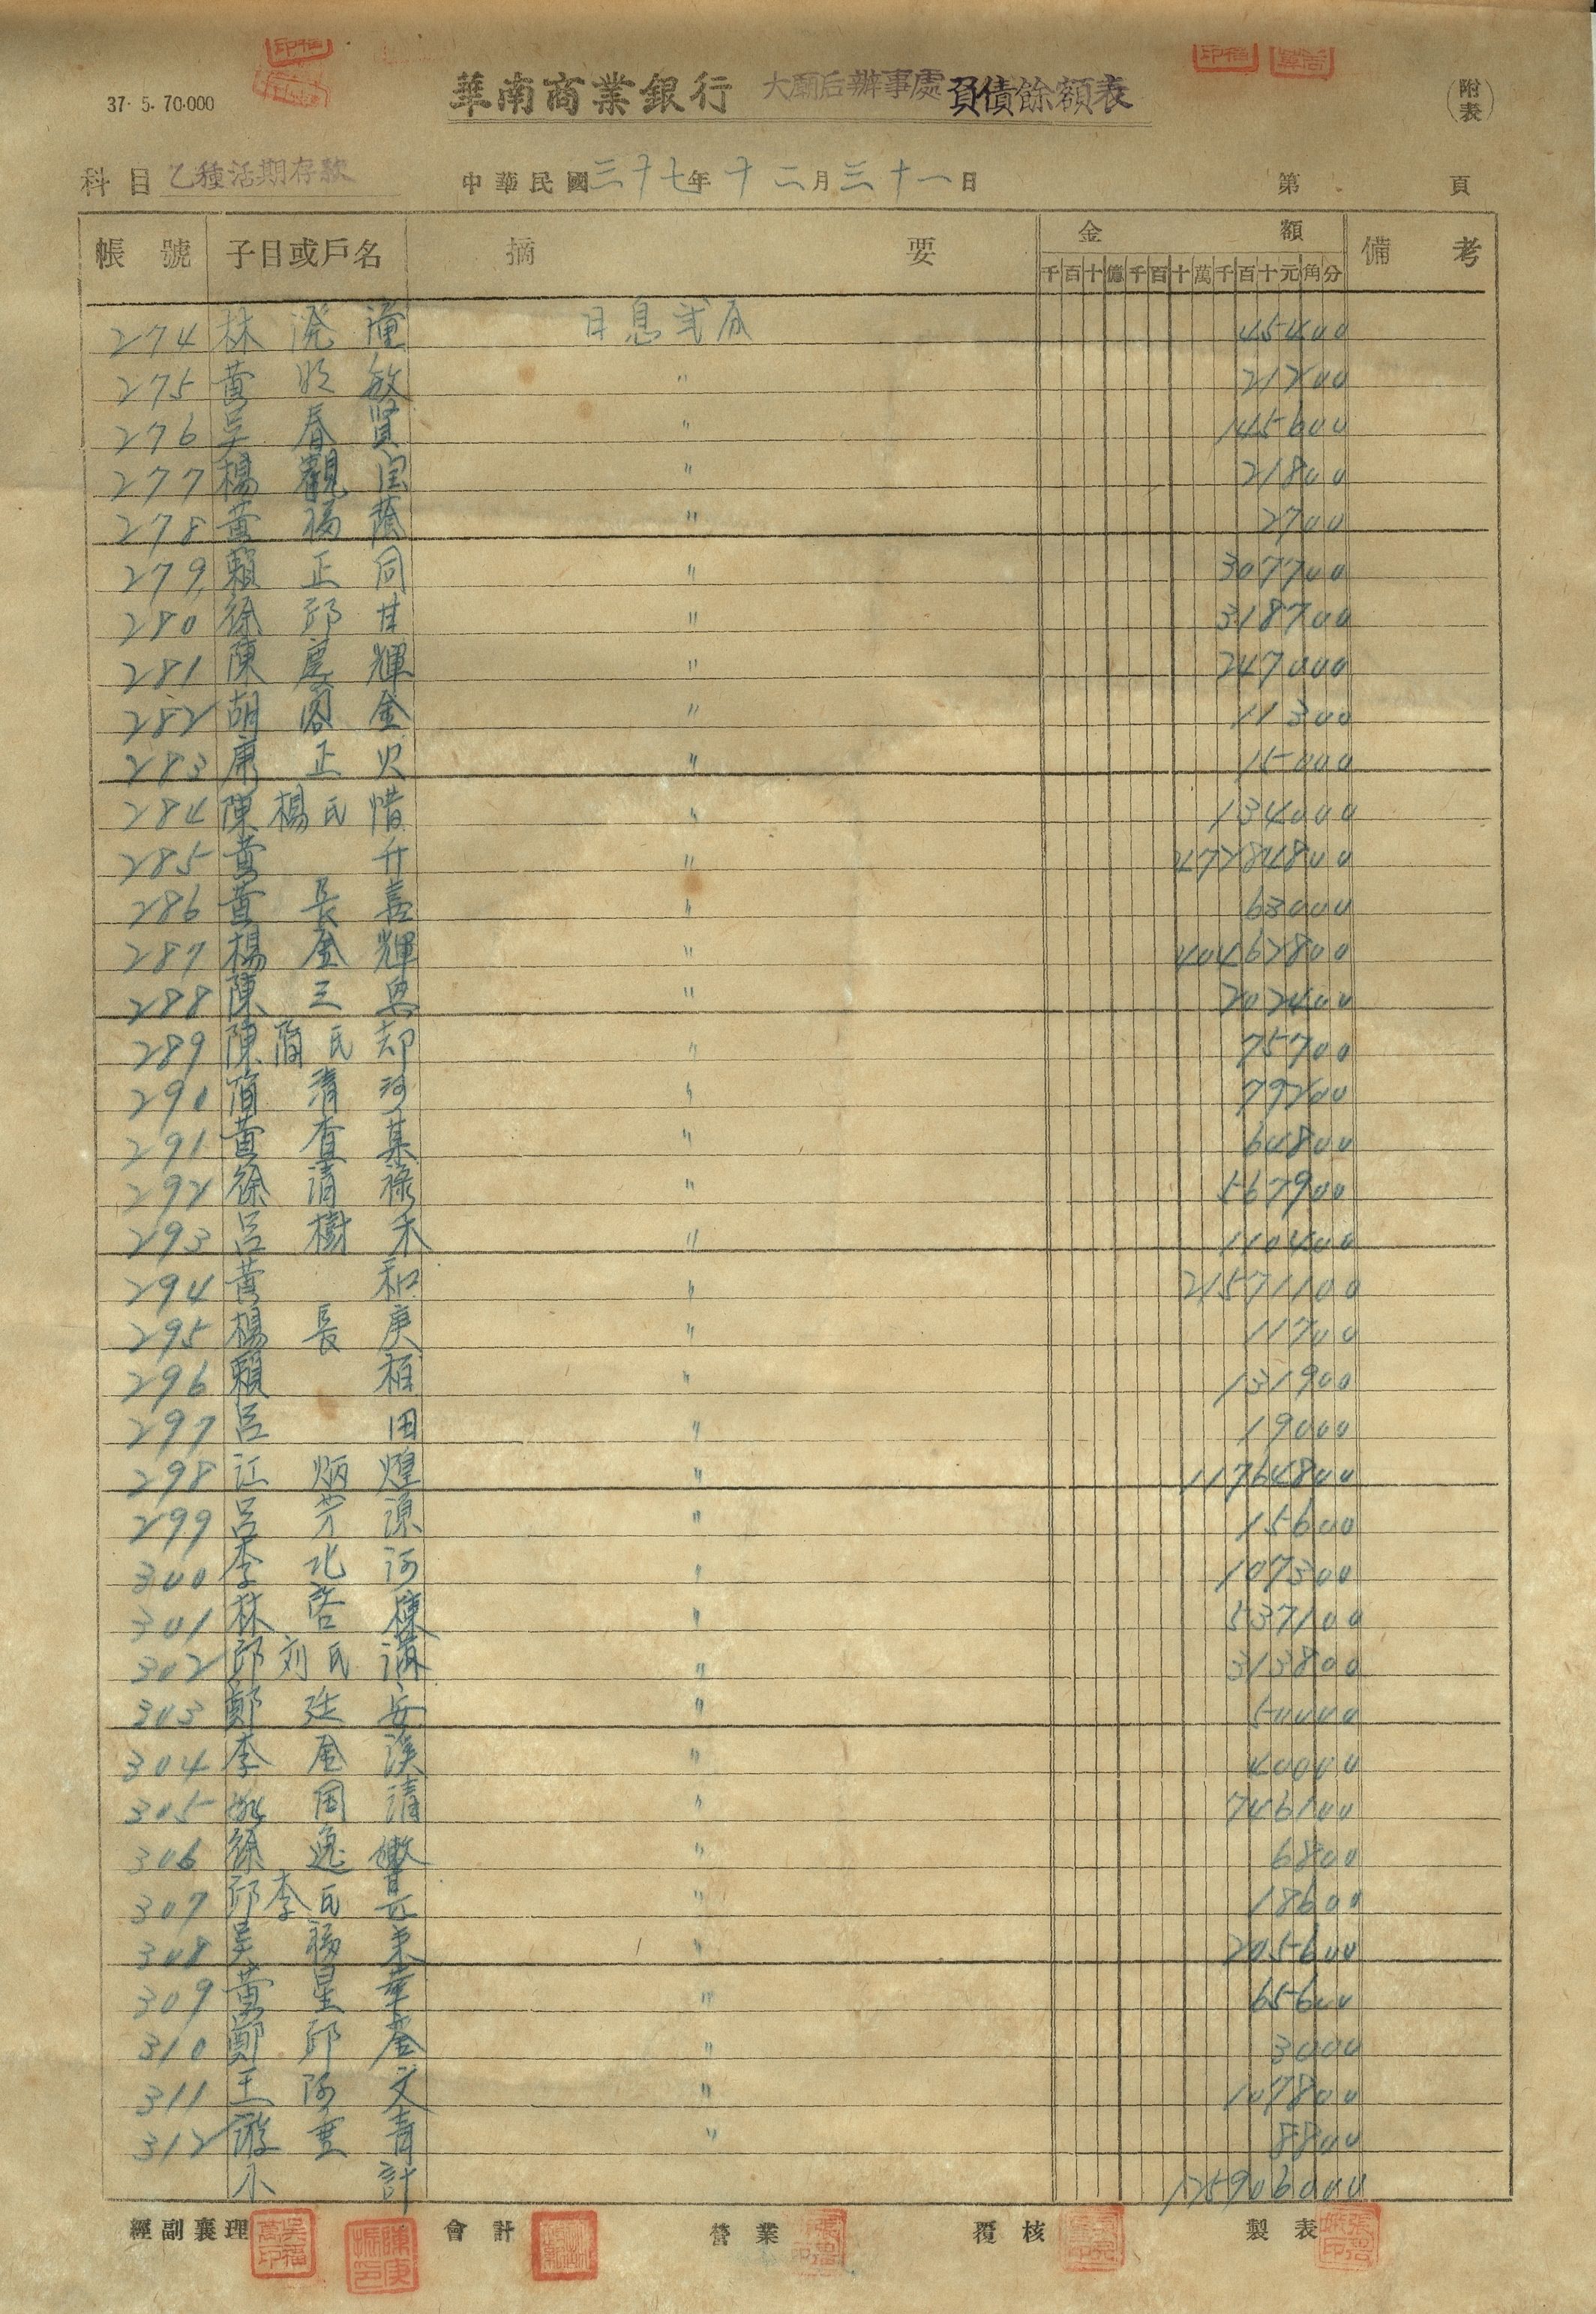 37. 5. 70.000
華南商業銀行 大廟后辦事處 負債餘額表 (附表)
科目 乙種活期存款 中華民國三十七年十二月三十一日 第 頁
帳號 子目或戶名 摘要 金額 備考
千百十億千百十萬千百十元角分
274 林 潼 日息弐厘 45400
275 黃 敏 〃 21200
276 吳春賢 〃 145600
277 楊觀 〃 21800
278 黃福蔭 〃 2700
279 賴正同 〃 307700
280 徐邱甘 〃 318700
281 陳慶輝 〃 247000
282 胡 金 〃 11300
283 正 〃 15000
284 陳楊氏惜 〃 134000
285 黃升 〃 47284800
286 黃長嘉 〃 63000
287 楊金輝 〃 40462800
288 陳三 〃 202400
289 陳 氏却 〃 75700
290 清河 〃 79200
291 黃查某 〃 64800
292 徐清祿 〃 567900
293 呂樹禾 〃 110400
294 黃和 〃 21571100
295 楊長庚 〃 11700
296 賴 〃 131900
297 呂田 〃 19000
298 江炳煌 〃 11764800
299 呂芳源 〃 15600
300 李北河 〃 107300
301 林啓棟 〃 537100
302 邱刘氏滿 〃 313800
303 鄭廷安 〃 50000
304 李金溪 〃 40000
305 國清 〃 746100
306 徐逸 〃 6800
307 邱李氏 〃 18600
308 吳福來 〃 205600
309 黃星華 〃 65600
310 鄭邱 〃 3000
311 王阿文 〃 107800
312 游 青 〃 8800
小計 125906000
經副襄理 會計 營業 覆核 製表